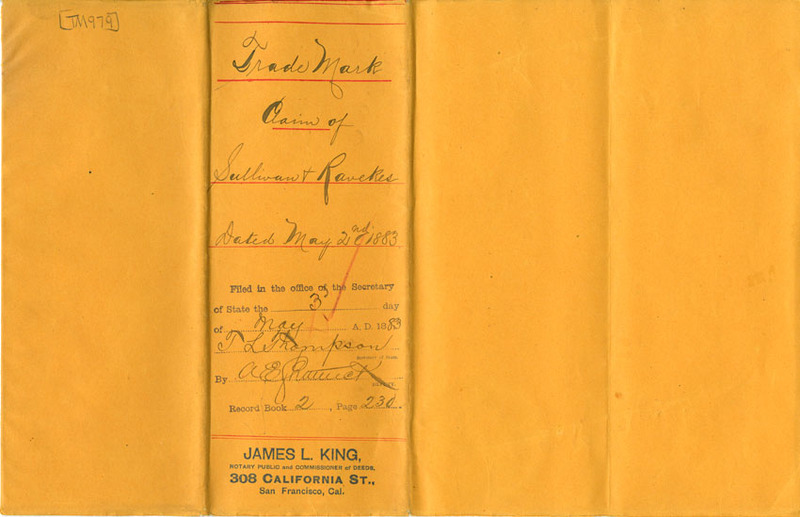 [TM979]
Trade Mark
Claim of
Sullivan & Ravekes
Dated May 2nd 1883
Filed in the office of the Secretary
of State the 3d day
of May A. D. 1883
T L Thompson
Secretary of State
By A E
Record Book 2, Page 230.
JAMES L. KING,
NOTARY PUBLIC and COMMISSIONER of DEEDS,
308 CALIFORNIA ST.,
San Francisco, Cal.